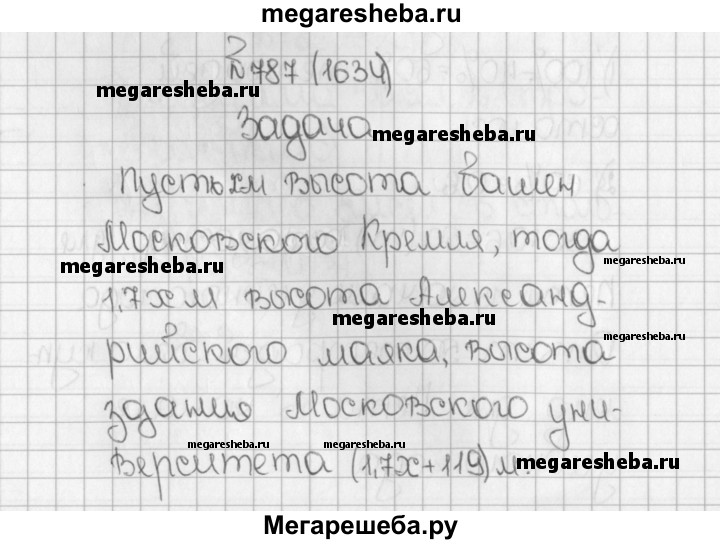 megaresheba.ru
№787 (1634)
megaresheba.ru
Задача
megaresheba.ru
Пусть x м высота башен
Московского Кремля, тогда
megaresheba.ru
megaresheba.ru
1,7x м высота Александ-
megaresheba.ru
megaresheba.ru
рийского маяка, высота
здания Московского уни-
megaresheba.ru
megaresheba.ru
верситета (1,7x+119) м.
megaresheba.ru
Мегарешеба.ру